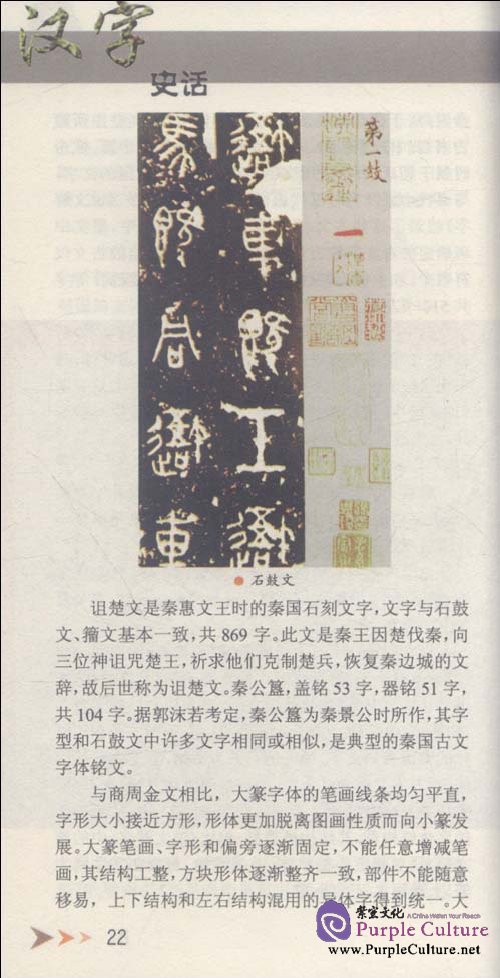 汉字
史话
第一鼓
石鼓文
诅楚文是秦惠文王时的秦国石刻文字，文字与石鼓
文、籀文基本一致，共 869 字。此文是秦王因楚伐秦，向
三位神诅咒楚王，祈求他们克制楚兵，恢复秦边城的文
辞，故后世称为诅楚文。秦公簋，盖铭 53 字，器铭 51 字，
共 104 字。据郭沫若考定，秦公簋为秦景公时所作，其字
型和石鼓文中许多文字相同或相似，是典型的秦国古文
字体铭文。
与商周金文相比，大篆字体的笔画线条均匀平直，
字形大小接近方形，形体更加脱离图画性质而向小篆发
展。大篆笔画、字形和偏旁逐渐固定，不能任意增减笔
画，其结构工整，方块形体逐渐整齐一致，部件不能随意
移易，上下结构和左右结构混用的异体字得到统一。大
22
紫宝文化 A China Within Your Reach
Purple Culture
www.PurpleCulture.net